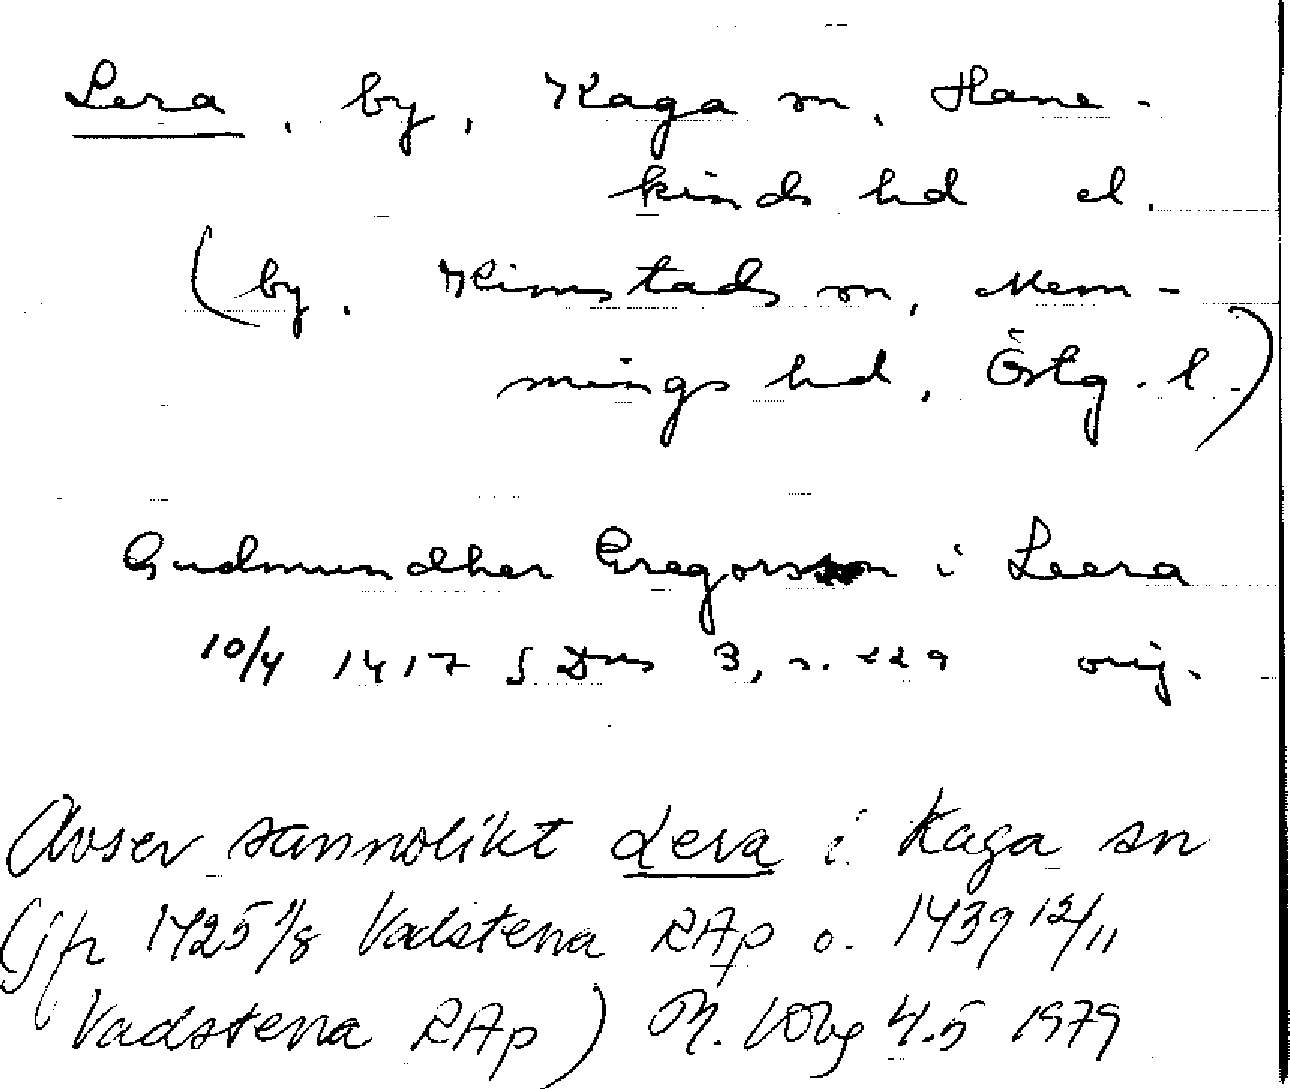 Lera, by, Kaga sn, Hane-
kinds hd el.
(by, Kimstads sn, Mem-
mings hd, Östg. l.)
Gudmundher Gregorsson i Leera
10/4 1417 SDns 3, s. 229 orig.
Avser sannolikt Lera i Kaga sn
(jfr 1425 1/8 Vadstena RAp o. 1439 12/11
Vadstena RAp) 4.5 1979